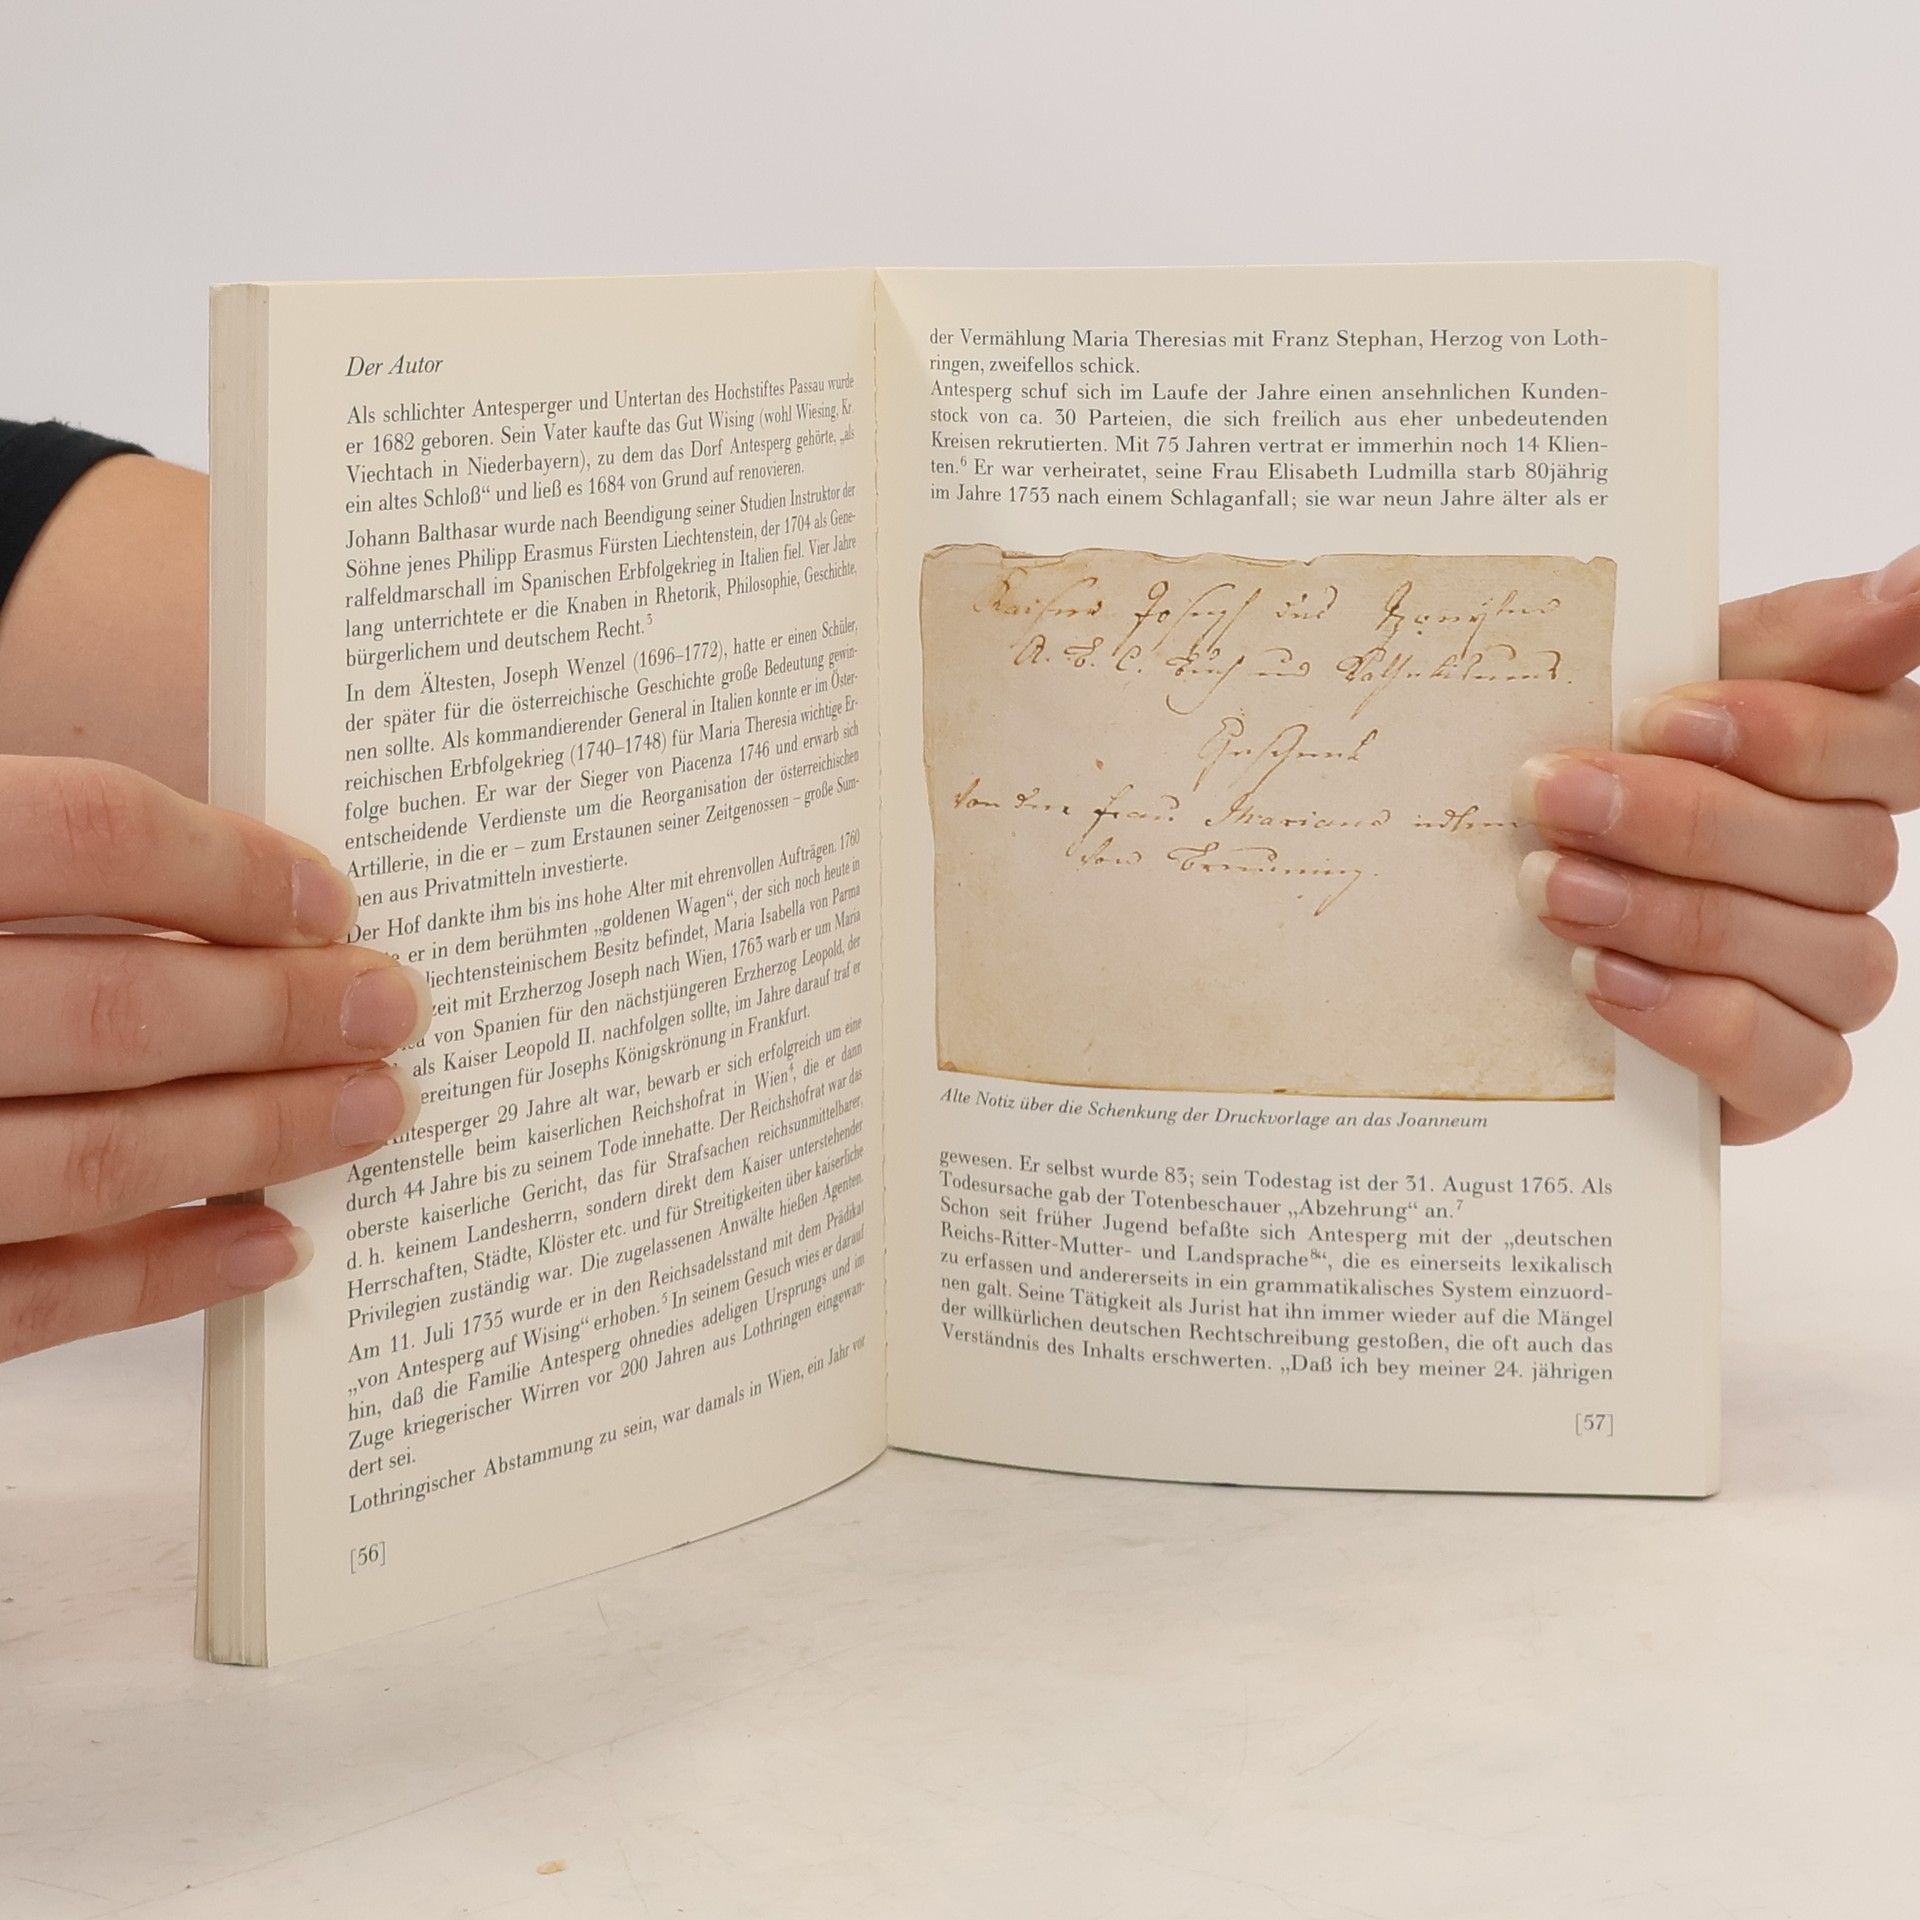 Der Autor
Als schlichter Antesperger und Untertan des Hochstiftes Passau wurde
er 1682 geboren. Sein Vater kaufte das Gut Wising (wohl Wiesing, Kr.
Viechtach in Niederbayern), zu dem das Dorf Antesperg gehörte, „als
ein altes Schloß“ und ließ es 1684 von Grund auf renovieren.
Johann Balthasar wurde nach Beendigung seiner Studien Instruktor der
Söhne jenes Philipp Erasmus Fürsten Liechtenstein, der 1704 als Gene-
ralfeldmarschall im Spanischen Erbfolgekrieg in Italien fiel. Vier Jahre
lang unterrichtete er die Knaben in Rhetorik, Philosophie, Geschichte,
bürgerlichem und deutschem Recht.3
In dem Ältesten, Joseph Wenzel (1696–1772), hatte er einen Schüler,
der später für die österreichische Geschichte große Bedeutung gewin-
nen sollte. Als kommandierender General in Italien konnte er im Öster-
reichischen Erbfolgekrieg (1740–1748) für Maria Theresia wichtige Er-
folge buchen. Er war der Sieger von Piacenza 1746 und erwarb sich
entscheidende Verdienste um die Reorganisation der österreichischen
Artillerie, in die er – zum Erstaunen seiner Zeitgenossen – große Sum-
men aus Privatmitteln investierte.
Der Hof dankte ihm bis ins hohe Alter mit ehrenvollen Aufträgen. 1760
er in dem berühmten „goldenen Wagen“, der sich noch heute in
liechtensteinischem Besitz befindet, Maria Isabella von Parma
zeit mit Erzherzog Joseph nach Wien, 1763 warb er um Maria
von Spanien für den nächstjüngeren Erzherzog Leopold, der
als Kaiser Leopold II. nachfolgen sollte, im Jahre darauf traf er
ereitungen für Josephs Königskrönung in Frankfurt.
Antesperger 29 Jahre alt war, bewarb er sich erfolgreich um eine
Agentenstelle beim kaiserlichen Reichshofrat in Wien4, die er dann
durch 44 Jahre bis zu seinem Tode innehatte. Der Reichshofrat war das
oberste kaiserliche Gericht, das für Strafsachen reichsunmittelbarer,
d. h. keinem Landesherrn, sondern direkt dem Kaiser unterstehender
Herrschaften, Städte, Klöster etc. und für Streitigkeiten über kaiserliche
Privilegien zuständig war. Die zugelassenen Anwälte hießen Agenten.
Am 11. Juli 1735 wurde er in den Reichsadelsstand mit dem Prädikat
„von Antesperg auf Wising“ erhoben.5 In seinem Gesuch wies er darauf
hin, daß die Familie Antesperg ohnedies adeligen Ursprungs und im
Zuge kriegerischer Wirren vor 200 Jahren aus Lothringen eingewan-
dert sei.
Lothringischer Abstammung zu sein, war damals in Wien, ein Jahr vor
[56]
der Vermählung Maria Theresias mit Franz Stephan, Herzog von Loth-
ringen, zweifellos schick.
Antesperg schuf sich im Laufe der Jahre einen ansehnlichen Kunden-
stock von ca. 30 Parteien, die sich freilich aus eher unbedeutenden
Kreisen rekrutierten. Mit 75 Jahren vertrat er immerhin noch 14 Klien-
ten.6 Er war verheiratet, seine Frau Elisabeth Ludmilla starb 80jährig
im Jahre 1753 nach einem Schlaganfall; sie war neun Jahre älter als er
Kaiser Joseph des Zweyten
A. B. C. Buch und
Geschenk
von der Frau Mariana edlen
von
Alte Notiz über die Schenkung der Druckvorlage an das Joanneum
gewesen. Er selbst wurde 83; sein Todestag ist der 31. August 1765. Als
Todesursache gab der Totenbeschauer „Abzehrung“ an.7
Schon seit früher Jugend befaßte sich Antesperg mit der „deutschen
Reichs-Ritter-Mutter- und Landsprache8“, die es einerseits lexikalisch
zu erfassen und andererseits in ein grammatikalisches System einzuord-
nen galt. Seine Tätigkeit als Jurist hat ihn immer wieder auf die Mängel
der willkürlichen deutschen Rechtschreibung gestoßen, die oft auch das
Verständnis des Inhalts erschwerten. „Daß ich bey meiner 24. jährigen
[57]